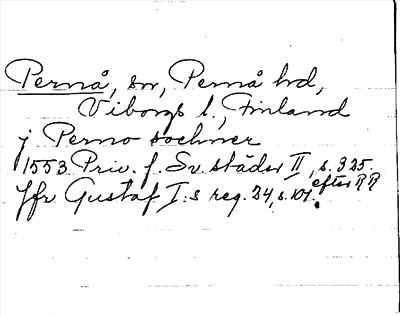 Pernå, sn, Pernå hd,
Viborgs l., Finland
j Perno sochner
1553 Priv. f. Sv städer II, s. 325.
efter RR
Jfr Gustaf I:s reg. 24, s. 101.